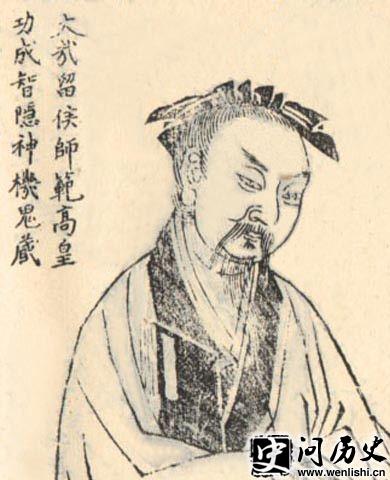 大哉留侯師範高皇
功成智隱神機鬼藏
史问历史
www.wenlishi.cn